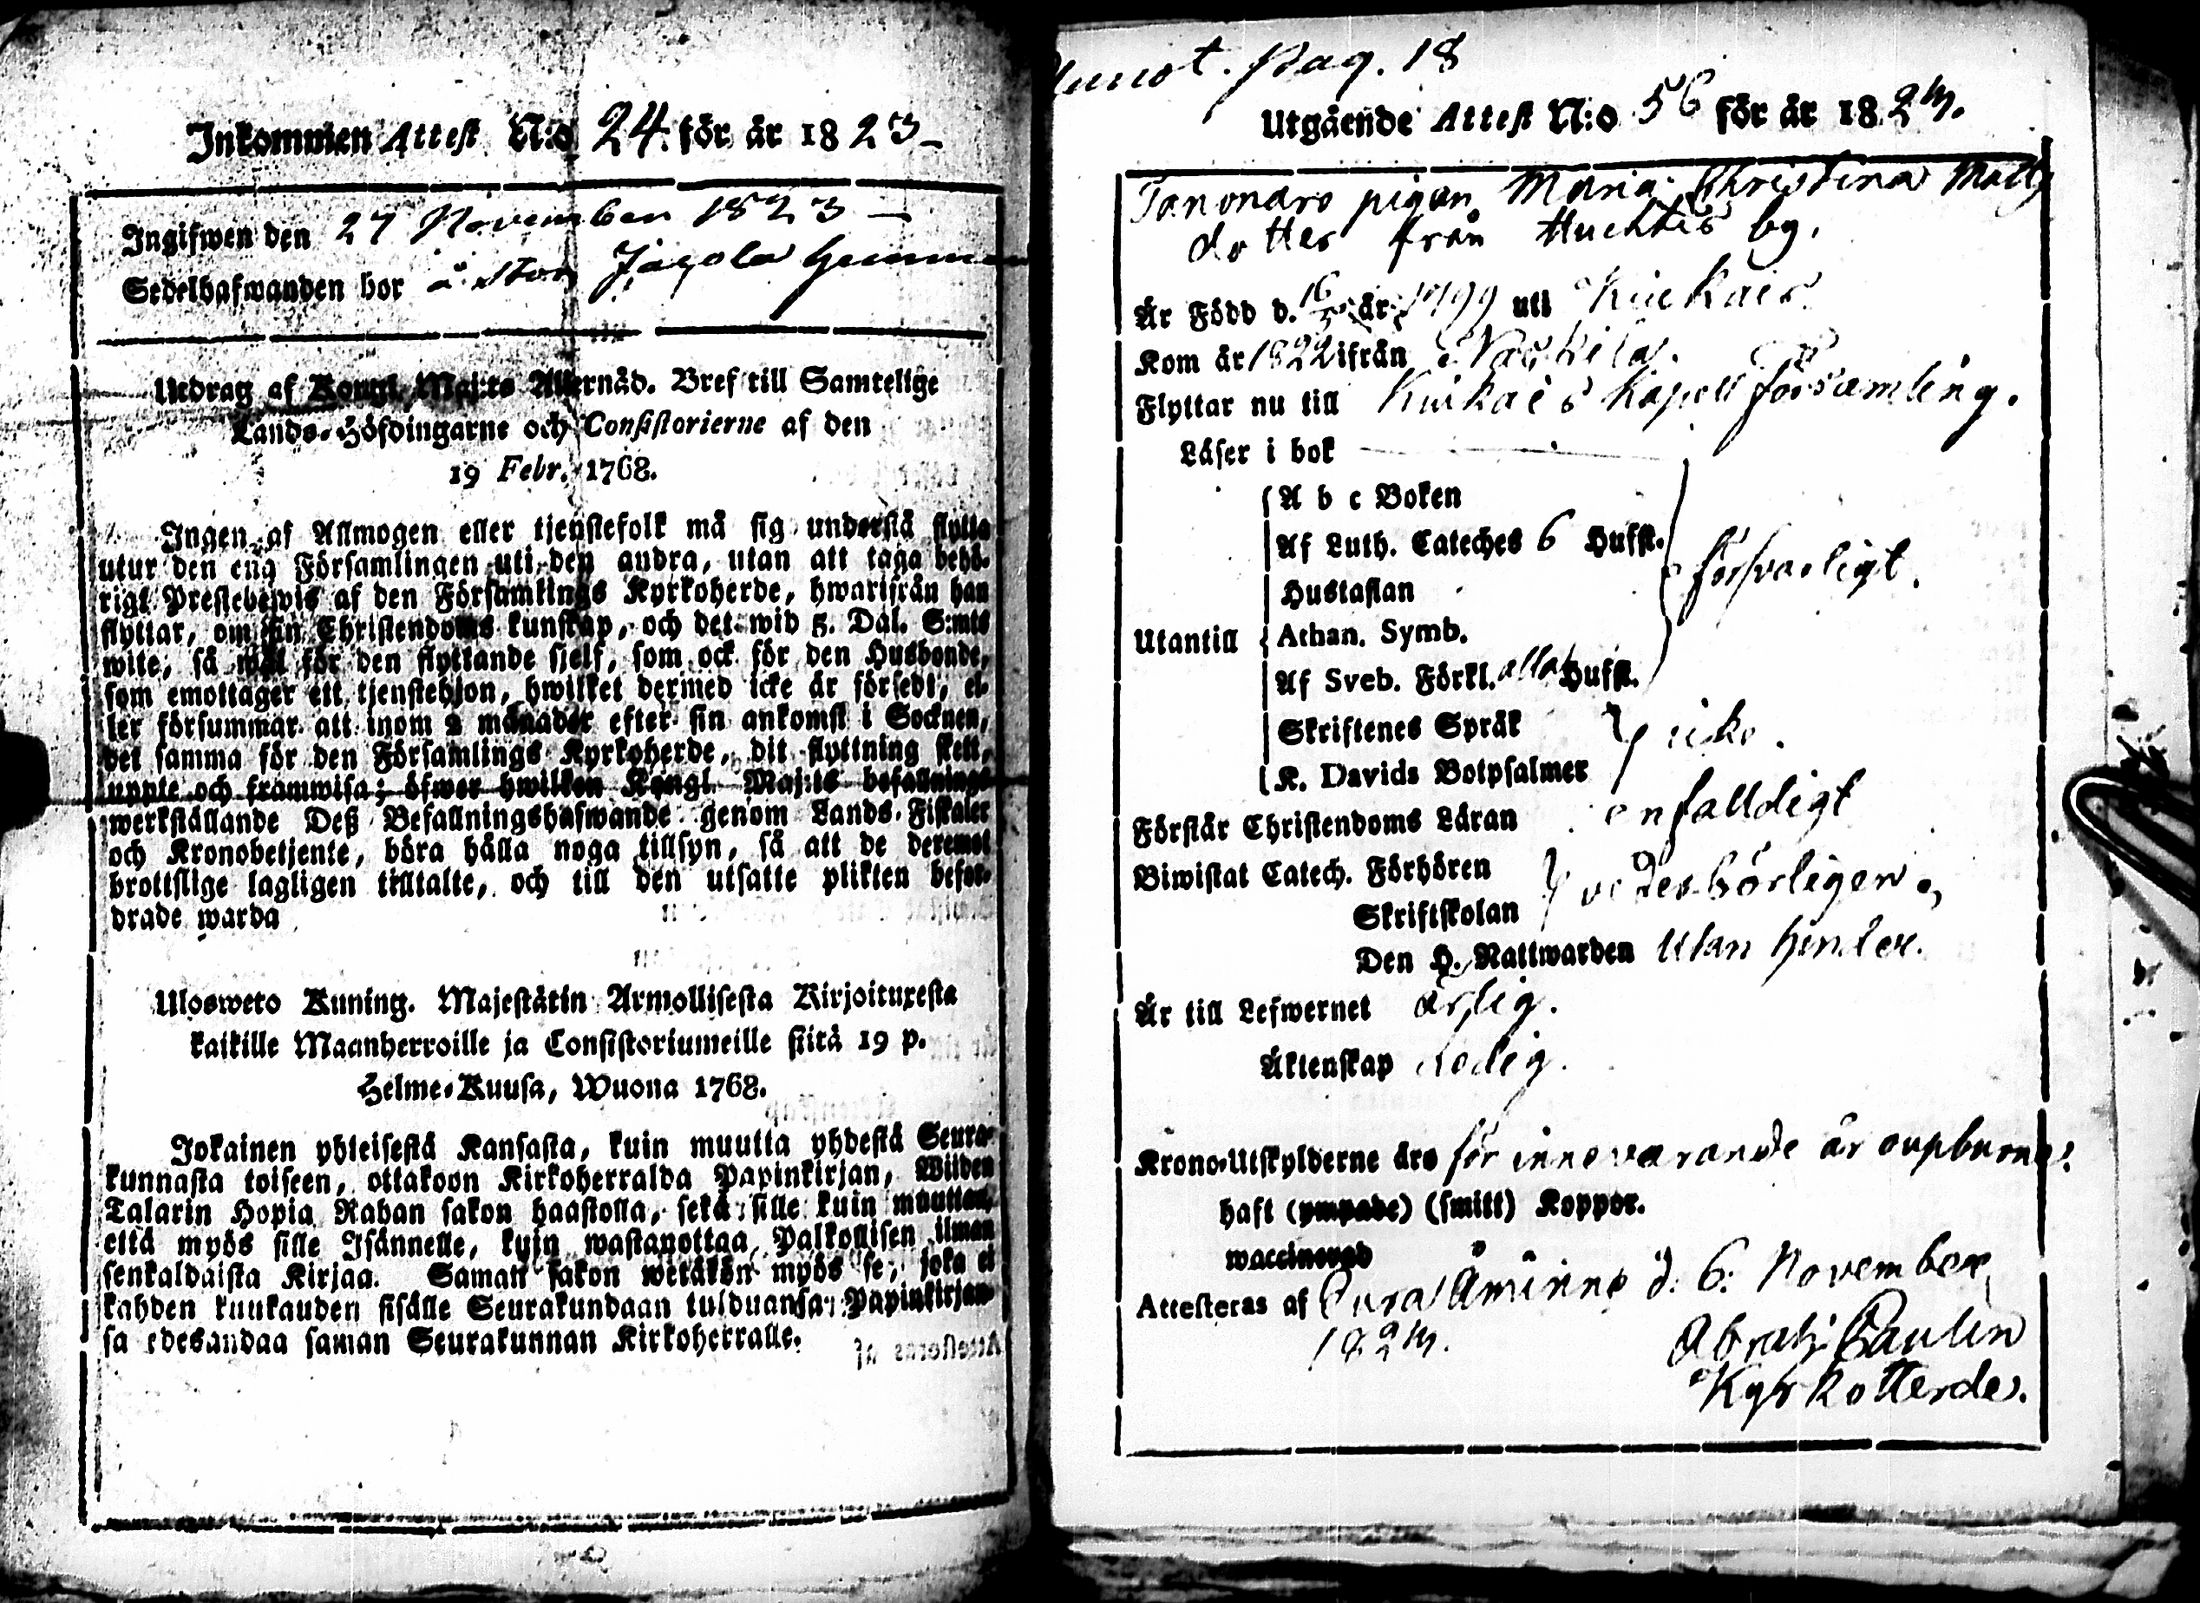 Inkommen Attest N:o 24 för år 1823
Ingifwen den 27 November 1823
Sedelhafwanden bor å Stor Jägola
Utdrag af Kongl. Maj:ts Allernåd. Bref till Samtelige
Lands-Höfdingarne och Consistorierne af den
19 Febr. 1768.
Ingen af Allmogen eller tjenstefolk må sig understå flytta
utur den ena Församlingen uti den andra, utan att taga behö-
rigt Prestebewis af den Församlings Kyrkoherde, hwarifrån han
flyttar, om sin Christendoms kunskap, och det wid 5. Dal. S:mts
wite, så wäl för den flyttande sjelf, som ock för den Husbonde,
som emottager ett tjenstehjon, hwilket dermed icke är försedt, el-
ler försummar att inom 2 månader efter sin ankomst i Socknen,
det samma för den Församlings Kyrkoherde, dit flyttning skett,
uppte och framwisa; öfwer hwilken Kongl. Maj:ts befallnings
werkställande Deß Befallningshafwande genom Lands-Fiskaler
och Kronobetjente, böra hålla noga tillsyn, så att de deremot
brottslige lagligen tilltalte, och till den utsatte plikten befor-
drade warda
Ulosweto Kuning. Majestätin Armollisesta Kirjoituxesta
kaikille Maanherroille ja Consistoriumeille siitä 19 p.
Helme-Kuusa, Wuona 1768.
Jokainen yhteisestä Kansasta, kuin muutta yhdestä Seura-
kunnasta toiseen, ottakoon Kirkoherralda Papinkirjan, Wiiden
Talarin Hopia Rahan sakon haastolla, sekä sille kuin muuttaa,
että myös sille Isännelle, kuin wastanottaa Palkollisen ilman
senkaldaista Kirjaa. Saman sakon wetäkön myös se, joka ei
kahden kuukauden sisälle Seurakundaan tulduansa Papinkirjan-
sa edesandaa saman Seurakunnan Kirkoherralle.
Pag. 18
Utgående Attest N:o 56 för år 1823.
pigan Maria Christina Matts
dotter från Huchtis by.
År Född d. 16 år 1799 uti Kiukais
Kom år 1822 ifrån
Flyttar nu till Kiukais Kapell församling.
Läser i bok
A b c Boken
Af Luth. Cateches 6 Hufst.
försvarligt.
Hustaflan
Utantill Athan. Symb.
Af Sveb. Förkl. alla Hufst.
Skriftenes Språk
icke.
K. Davids Botpsalmer
Förstår Christendoms Läran enfalldigt
Biwistat Catech. Förhören
vederbörligen
Skriftskolan
Den H. Nattwarden utan hinder.
År till Lefwernet ärlig.
Äktenskap Ledig.
Krono-Utskylderne äro för innevarande år oupburne.
haft (ympade) (smitt) Koppor.
waccinerad
Attesteras af Eura Åminne d. 6. November
1823.
Abrah. Paulin
Kyrkoherde.